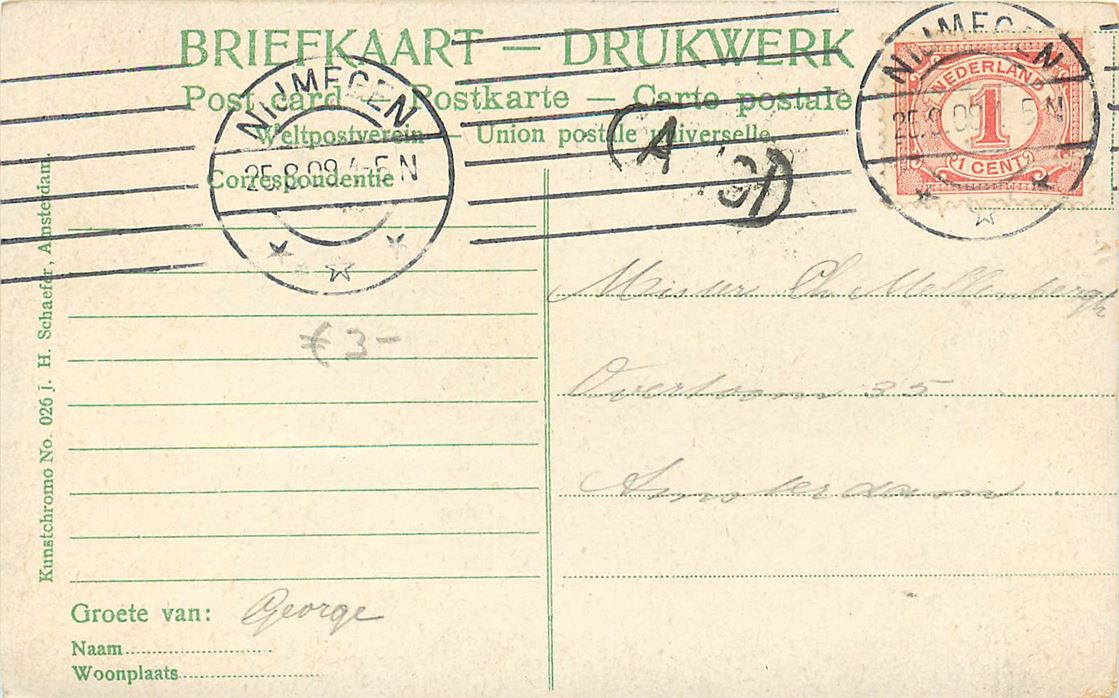 BRIEFKAART — DRUKWERK
Post card — Postkarte — Carte postale
Weltpostverein — Union postale universelle
Correspondentie
NIJMEGEN
25.8.09 4-5 N
A
NIJMEGEN
25.8.09 4-5 N
NEDERLAND
1
1 CENT
Ch Mellenbergh
Overtoom 35
Amsterdam
€ 3 -
Groete van: George
Naam
Woonplaats
Kunstchromo No. 026 j. H. Schaefer, Amsterdam.